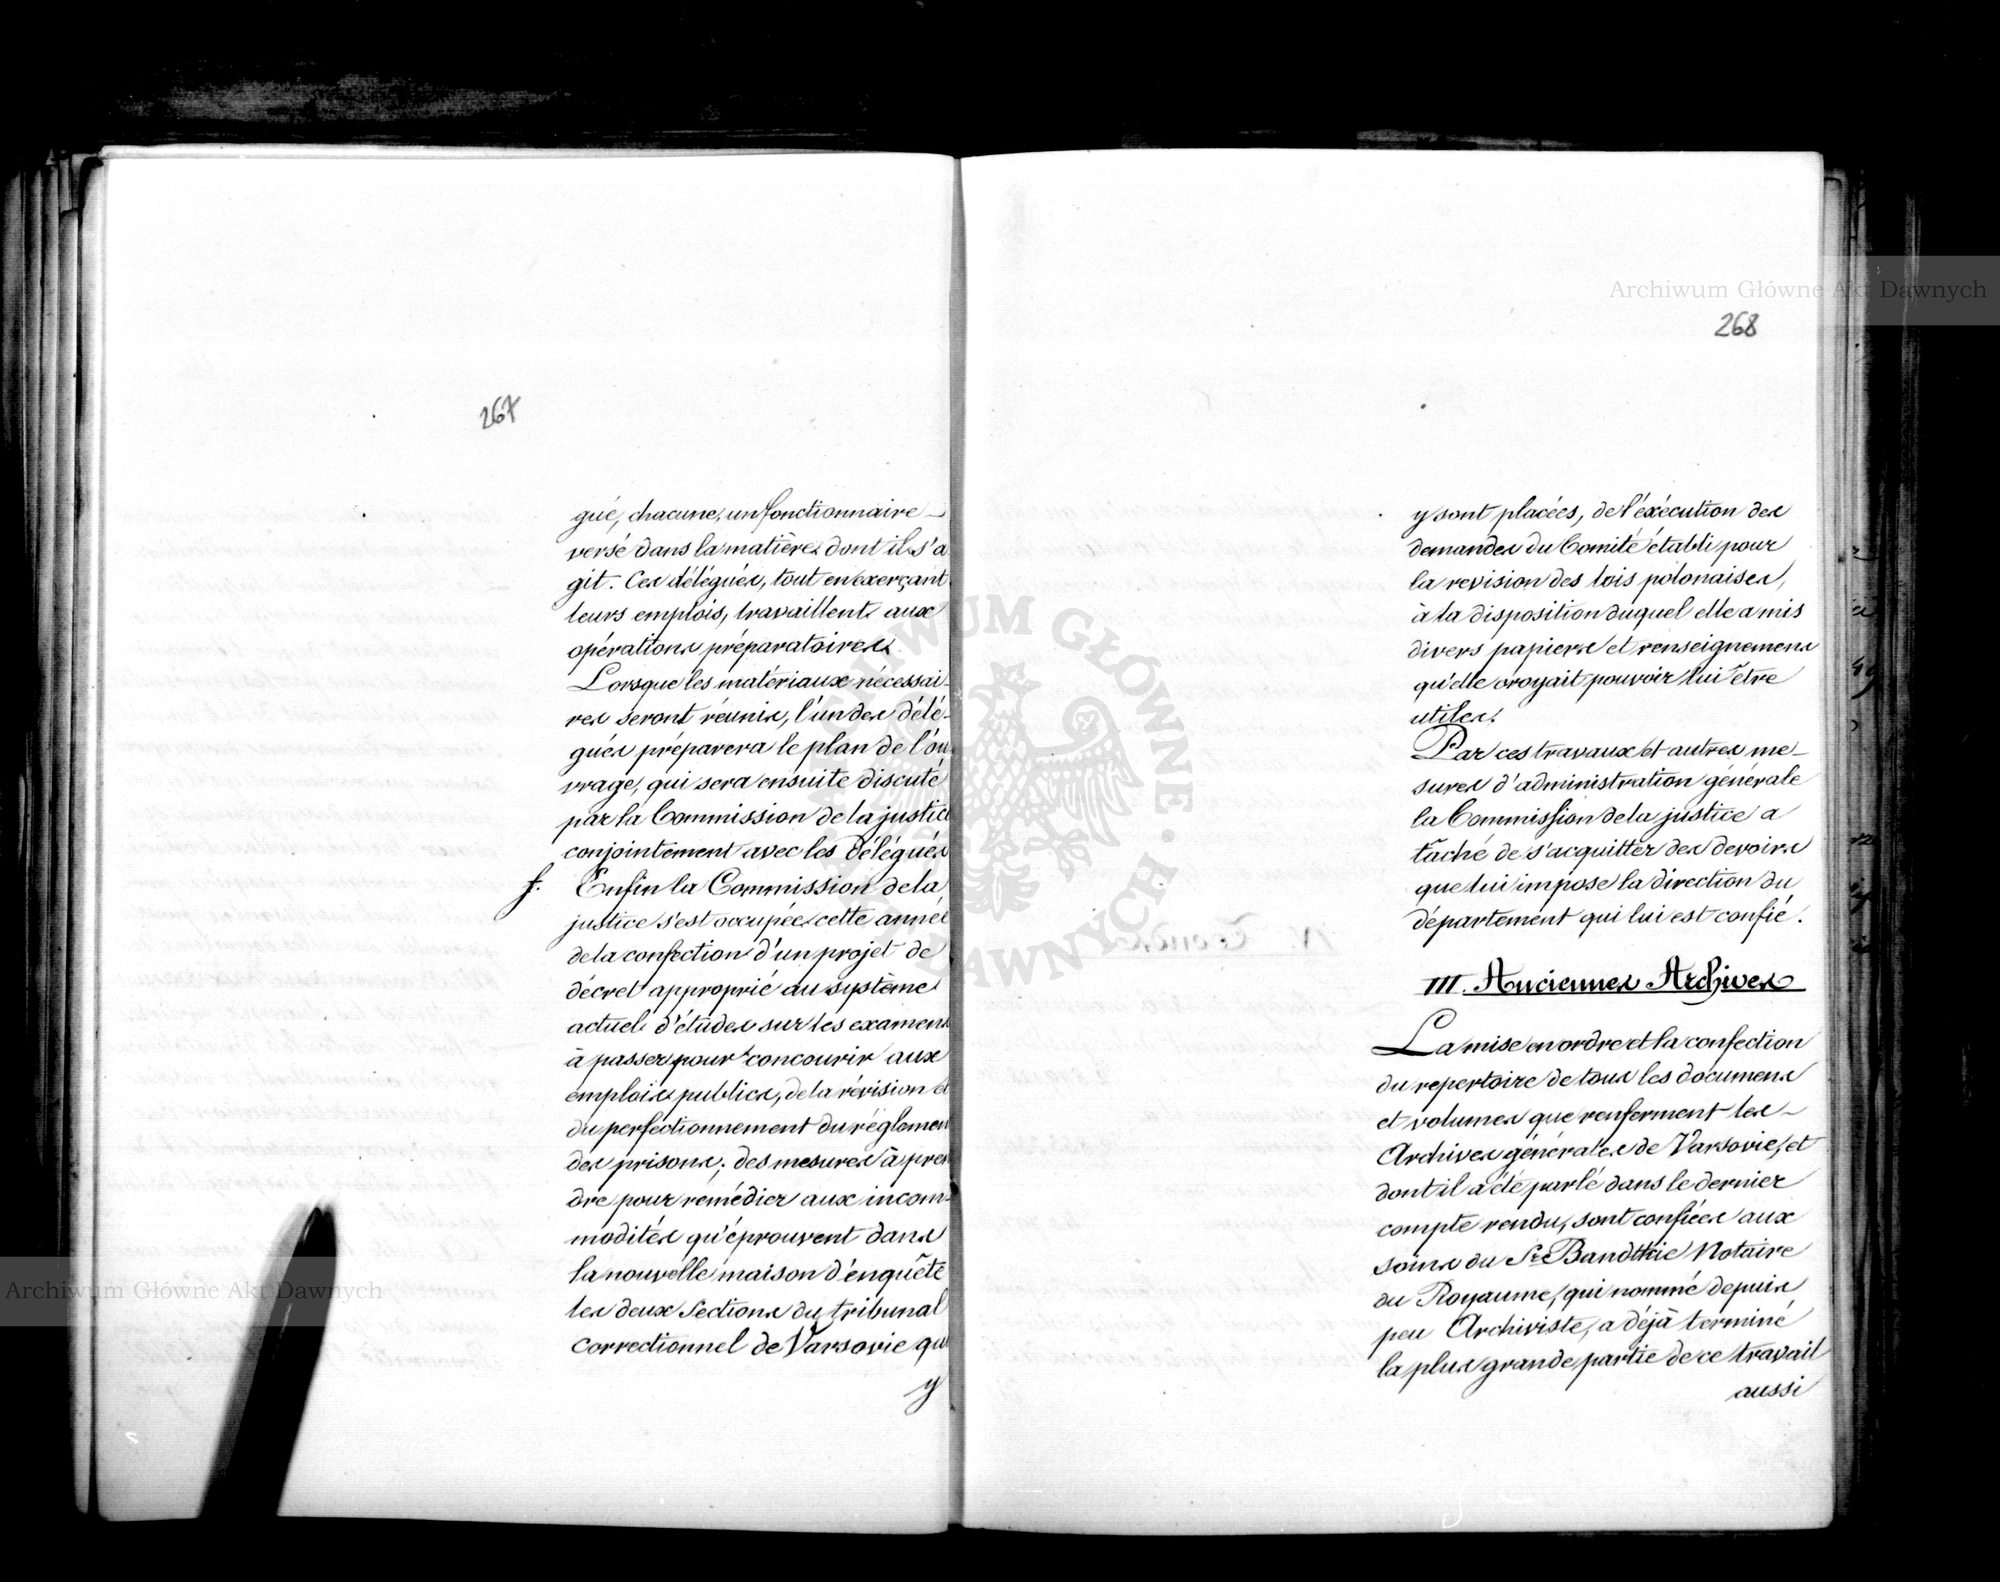 267
gué, chacune, un fonctionnaire
versé dans la matière dont il s'a
git. Ces délégués, tout en exerçant
leurs emplois, travaillent aux
opérations préparatoires.
Lorsque les matériaux nécessai-
res seront réunis, l'un des délé-
gués préparera le plan de l'ou
vrage, qui sera ensuite discuté
par la Commission de la justice
conjointement avec les délégués
f. Enfin la Commission de la
justice s'est occupée cette année
de la confection d'un projet de
décret approprié au système
actuel d'études sur les examens
à passer pour concourir aux
emplois publics, de la révision et
du perfectionnement du réglemen
des prisons; des mesures à pren
dre pour remédier aux incom-
modités qu'éprouvent dans
la nouvelle maison d'enquête
les deux Sections du tribunal
correctionnel de Varsovie qui
y
Archiwum Główne Akt Dawnych
268
y sont placées, de l'éxécution des
demandes du Comité établi pour
la revision des lois polonaises,
à la disposition duquel elle a mis
divers papiers et renseignemens
qu'elle croyait pouvoir lui être
utiles.
Par ces travaux et autres me-
sures d'administration générale
la Commission de la justice a
tâché de s'acquitter des devoirs
que lui impose la direction du
département qui lui est confié.
III. Anciennes Archives
La mise en ordre et la confection
du repertoire de tous les documens
et volumes que renferment les
Archives générales de Varsovie, et
dont il a été parlé dans le dernier
compte rendu, sont confiées aux
soins du Sr. Bandtkie Notaire
du Royaume, qui nommé depuis
peu Archiviste, a déjà terminé
la plus grande partie de ce travail
aussi
Archiwum Główne Akt Dawnych
ARCHIWUM GŁÓWNE AKT DAWNYCH